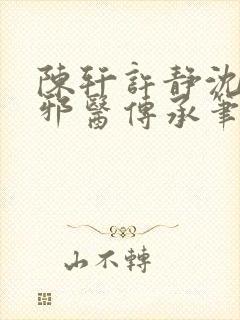 陳軒許靜沈
邪醫傳承筆
山不轉